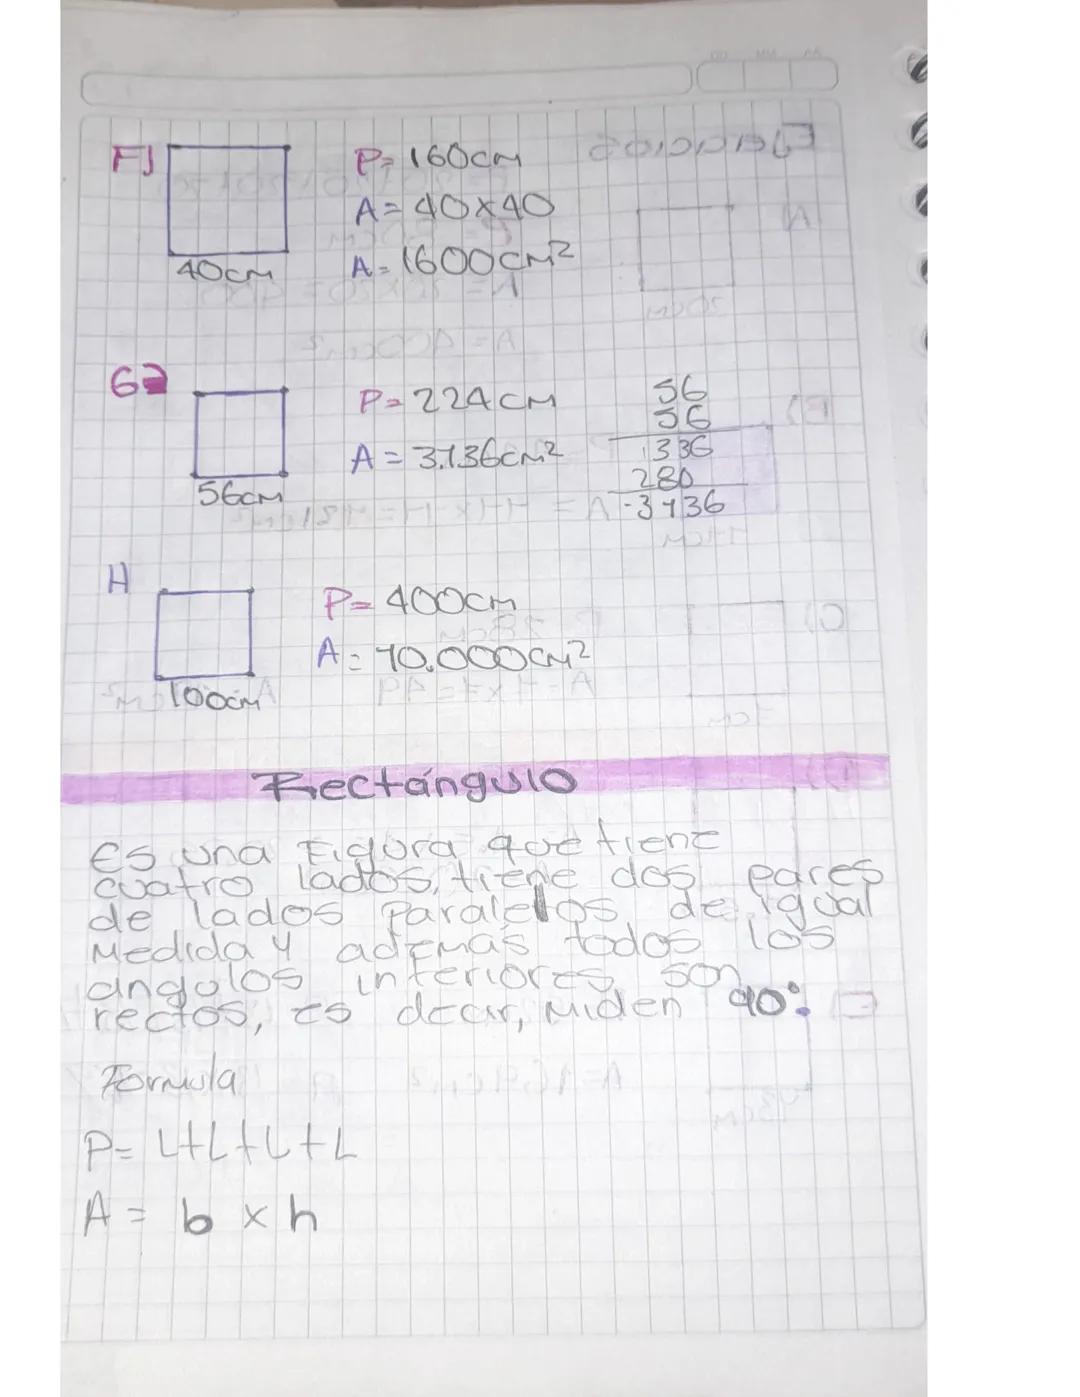 F)
P= 160cm
A= 40x40
A= 1600cm²
40cm
G)
P= 224cm
A= 3.136cm²
56cm
56
56
336
280
3136
H
P= 400cm
A= 10.000cm²
100cm
Rectángulo
Es una Figura que tiene
cuatro lados, tiene dos pares
de lados paralelos de igual
Medida y además todos los
angulos interiores son
rectos, es decir, Miden 90°.
Formula
P= L+L+L+L
A = b x h